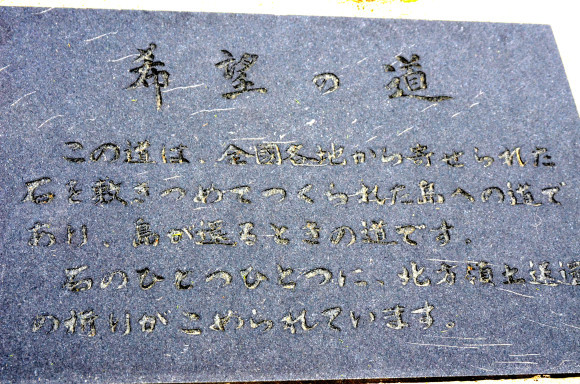 希望の道
この道は、全国各地から寄せられた
石を敷きつめてつくられた島への道で
あり、島が還るときの道です。
石のひとつひとつに、北方領土返還
の祈りがこめられています。